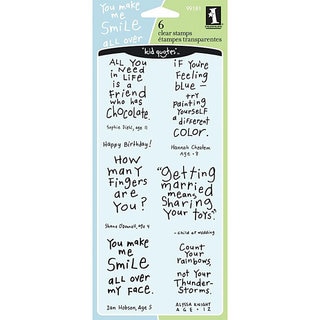 You make
me
Smile
all over
99181
6
clear stamps
étampes transparentes
"kid quotes"
ALL YOU
Need
in LiFe
is a
Friend
who has
Chocolate.
Sophie Diehl, age 11
Happy Birthday!
How
many
Fingers
are
You?
Shane O'Donnell, age 4
You make
me
Smile
all over
my Face.
Ian Hobson, Age 5
iF you're
Feeling
blue—
try
Painting
Yourself
a different
COLOR.
Hannah Cheslem
Age • 8
"Getting
married
means
Sharing
Your toys."
- child at wedding
Count
Your
rainbows,
not Your
Thunder-
Storms.
ALYSSA KNIGHT
AGE • 12